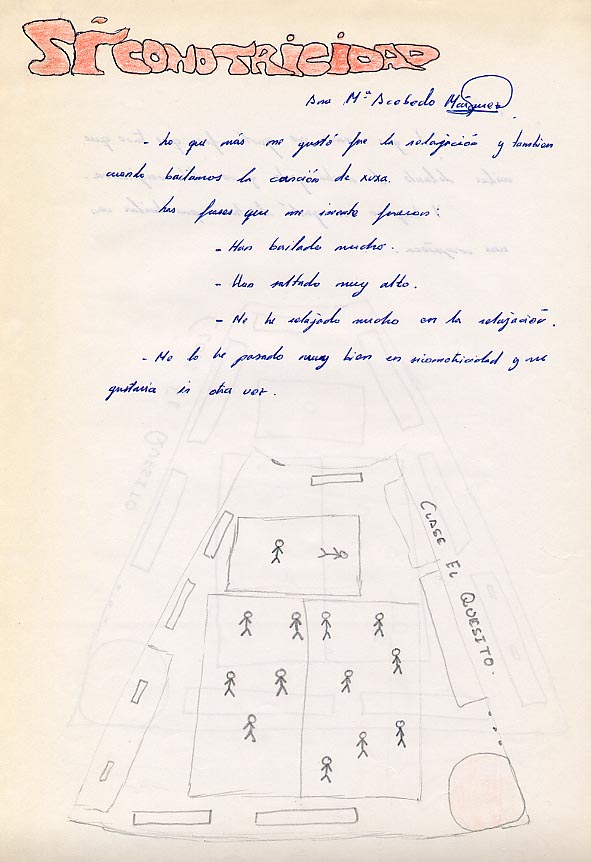 SICOMOTRICIDAD
Ana Mª Acebedo Márquez
- Lo que más me gustó fue la relajación y tambien
cuando bailamos la canción de xuxa.
Las frases que me invente fueron:
- Han bailado mucho.
- Han saltado muy alto.
- Me he relajado mucho en la relajación.
- Me lo he pasado muy bien en sicomotricidad y me
gustaria ir otra vez.
CLASE EL QUESITO.